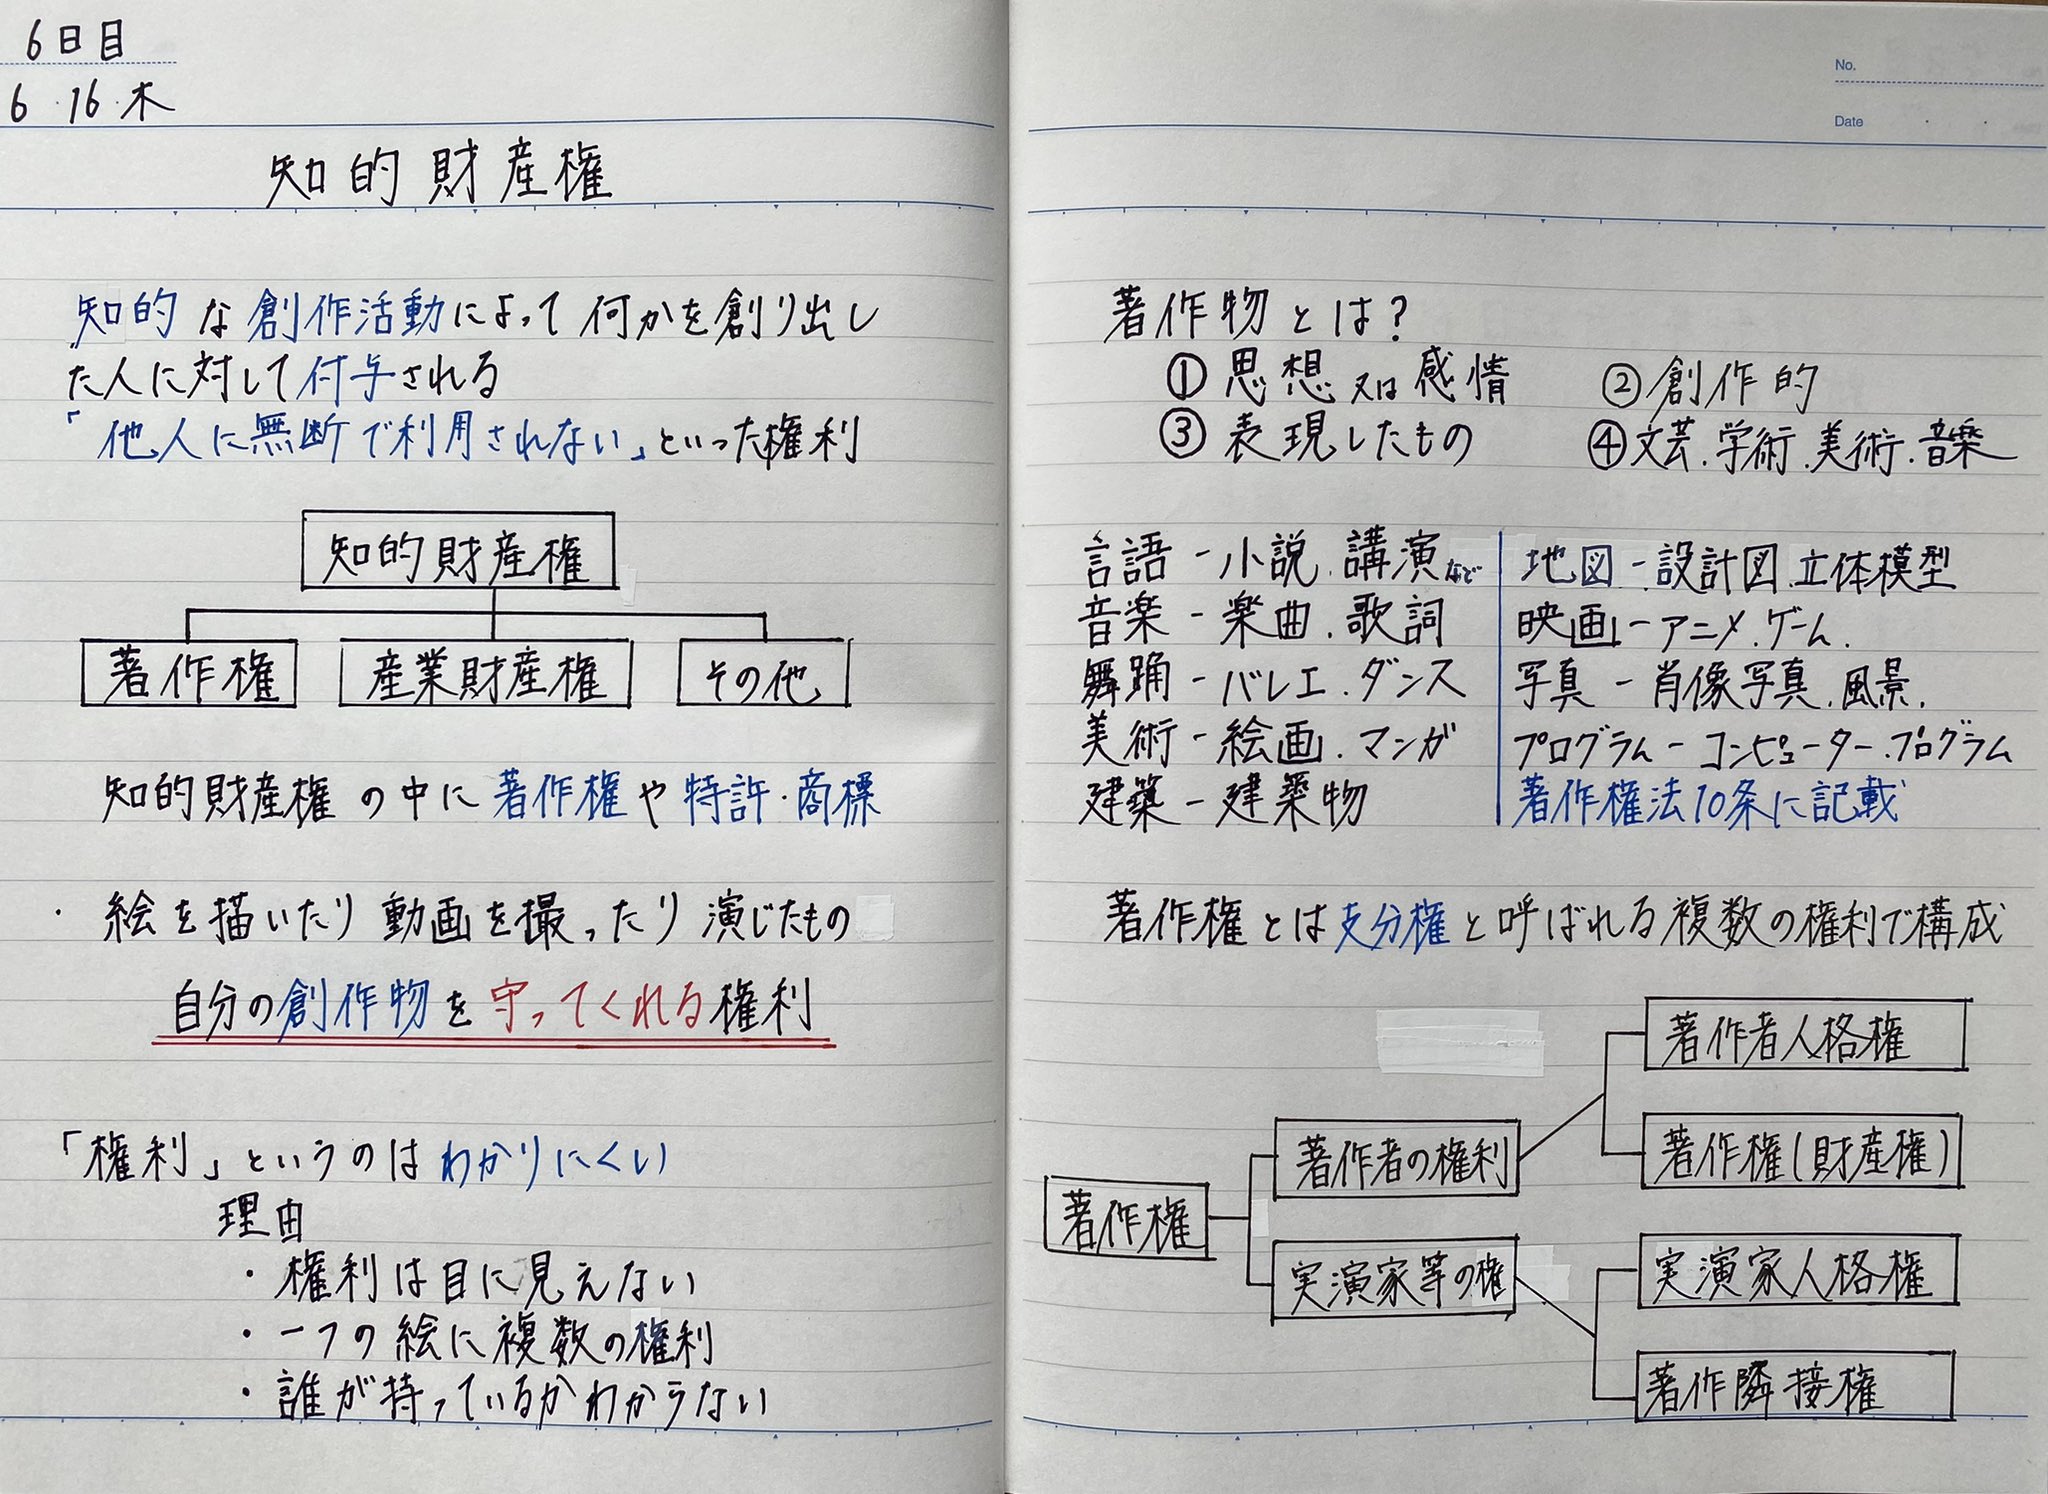 6日目
6・16・木
知的財産権
知的な創作活動によって何かを創り出し
た人に対して付与される
「他人に無断で利用されない」といった権利
知的財産権
著作権 産業財産権 その他
知的財産権の中に著作権や特許・商標
・絵を描いたり動画を撮ったり演じたもの
自分の創作物を守ってくれる権利
「権利」というのはわかりにくい
理由
・権利は目に見えない
・一つの絵に複数の権利
・誰が持っているかわからない
No.
Date
著作物とは?
①思想又は感情 ②創作的
③表現したもの ④文芸.学術.美術.音楽
言語-小説.講演など
音楽-楽曲.歌詞
舞踊-バレエ.ダンス
美術-絵画.マンガ
建築-建築物
地図-設計図.立体模型
映画-アニメ.ゲーム.
写真-肖像写真.風景.
プログラム-コンピューター.プログラム
著作権法10条に記載
著作権とは支分権と呼ばれる複数の権利で構成
著作権
著作者の権利
実演家等の権
著作者人格権
著作権(財産権)
実演家人格権
著作隣接権